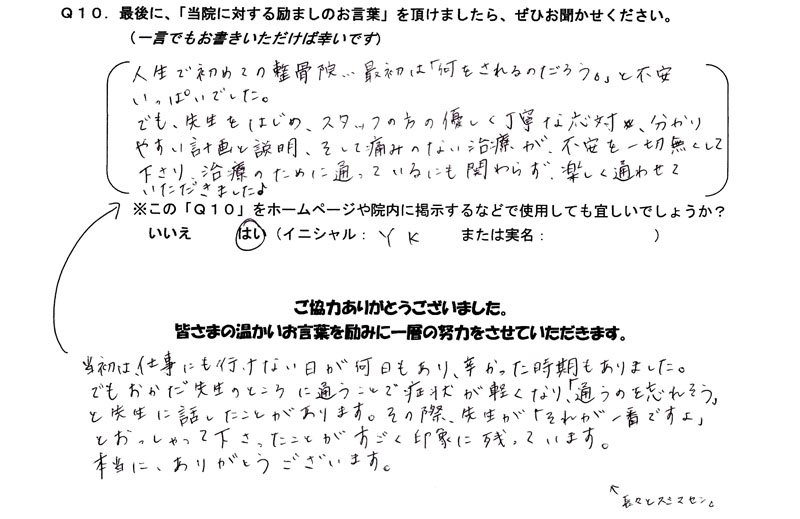 Q10．最後に、「当院に対する励ましのお言葉」を頂けましたら、ぜひお聞かせください。
（一言でもお書きいただけば幸いです）
人生で初めての整骨院… 最初は「何をされるのだろう。」と不安
いっぱいでした。
でも、先生をはじめ、スタッフの方の優しく丁寧な応対、分かり
やすい計画と説明、そして痛みのない治療が、不安を一切無くして
下さり、治療のために通っているにも関わらず、楽しく通わせて
いただきました♪
※この「Q10」をホームページや院内に掲示するなどで使用しても宜しいでしょうか？
いいえ　はい（イニシャル： Y K　または実名：　）
ご協力ありがとうございました。
皆さまの温かいお言葉を励みに一層の努力をさせていただきます。
当初は、仕事にも行けない日が何日もあり、辛かった時期もありました。
でもおかだ先生のところに通うことで症状が軽くなり、「通うのを忘れそう」
と先生に話したことがあります。その際、先生が「それが一番ですよ」
とおっしゃって下さったことがすごく印象に残っています。
本当に、ありがとうございます。
↑長々とスミマセン。